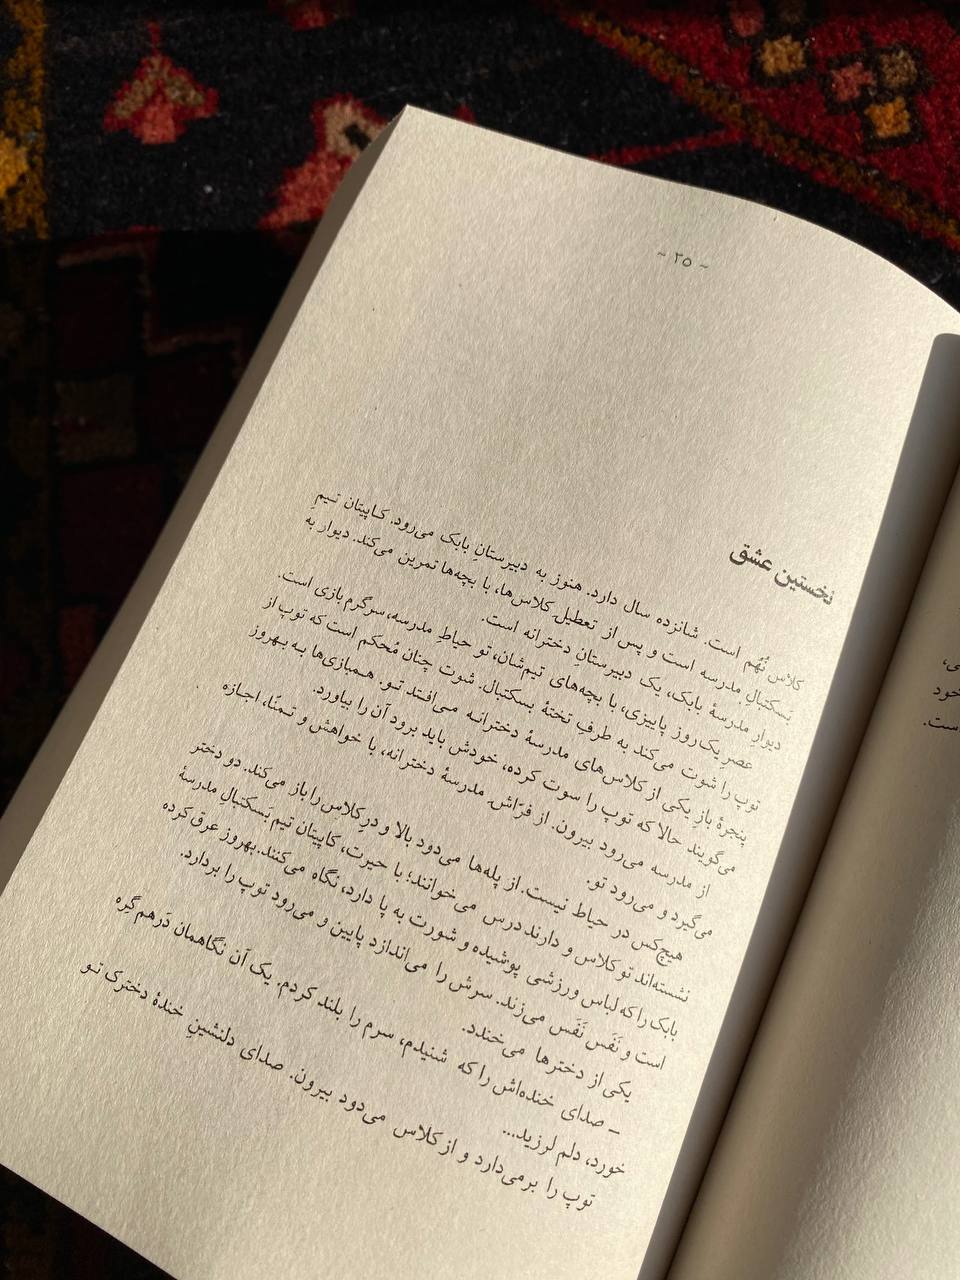 ~ ۲۵ ~
نخستین عشق
کلاس نُهُم است. شانزده سال دارد. هنوز به دبیرستانِ بابک می‌رود. کاپیتان تیمِ
بَسکتبالِ مدرسه است و پس از تعطیلِ کلاس‌ها، با بچه‌ها تمرین می‌کند. دیوار به
دیوارِ مدرسهٔ بابک، یک دبیرستانِ دخترانه است.
عصرِ یک روز پاییزی، با بچه‌های تیم‌شان، تو حیاطِ مدرسه، سرگرم بازی است.
توپ را شوت می‌کند به طرفِ تختهٔ بسکتبال. شوت چنان مُحکم است که توپ از
پنجرهٔ بازِ یکی از کلاس‌های مدرسهٔ دخترانه می‌افتد تو. همبازی‌ها به بهروز
می‌گویند حالا که توپ را سوت کرده، خودش باید برود آن را بیاورد.
از مدرسه می‌رود بیرون. از فرّاشِ مدرسهٔ دخترانه، با خواهش و تمنّا، اجازه
می‌گیرد و می‌رود تو.
هیچ‌کس در حیاط نیست. از پله‌ها می‌دود بالا و درِ کلاس را باز می‌کند. دو دختر
نشسته‌اند تو کلاس و دارند درس می‌خوانند؛ با حیرت، کاپیتان تیم بَسکتبالِ مدرسهٔ
بابک را که لباس ورزشی پوشیده و شورت به پا دارد، نگاه می‌کنند. بهروز عرق کرده
است و نَفَس نَفَس می‌زند. سرش را می‌اندازد پایین و می‌رود توپ را بردارد.
یکی از دخترها می‌خندد.
ـ صدای خنده‌اش را که شنیدم، سرم را بلند کردم. یک آن نگاهمان دَرهم گِره
خورد، دلم لرزید...
توپ را برمی‌دارد و از کلاس می‌دود بیرون. صدای دلنشینِ خندهٔ دخترک تو
ی،
خود
است.